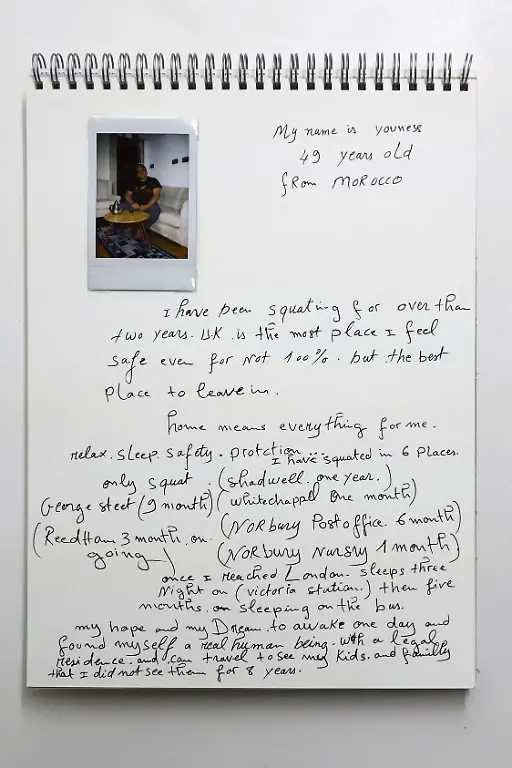 My name is youness
49 years old
from MOROCCO
I have been squating for over than
two years. U.K is the most place I feel
safe even for not 100%. but the best
place to leave in.
home means everything for me.
relax. sleep. safty. protction...
I have squated in 6 places.
only squat. (shadwell. one year.)
George steet (9 month) (whitechappel one month)
(ReedHam 3 month. on going) (NORbury Post office. 6 month)
(NORbury Nursry 1 month)
once I reached London. sleeps three
night on (victoria station.) then five
months. on sleeping on the bus.
my hope and my Dream. to awake one day and
found myself a real human being. with a legal
residence. and can travel to see my kids. and familly
that I did not see them for 8 years.